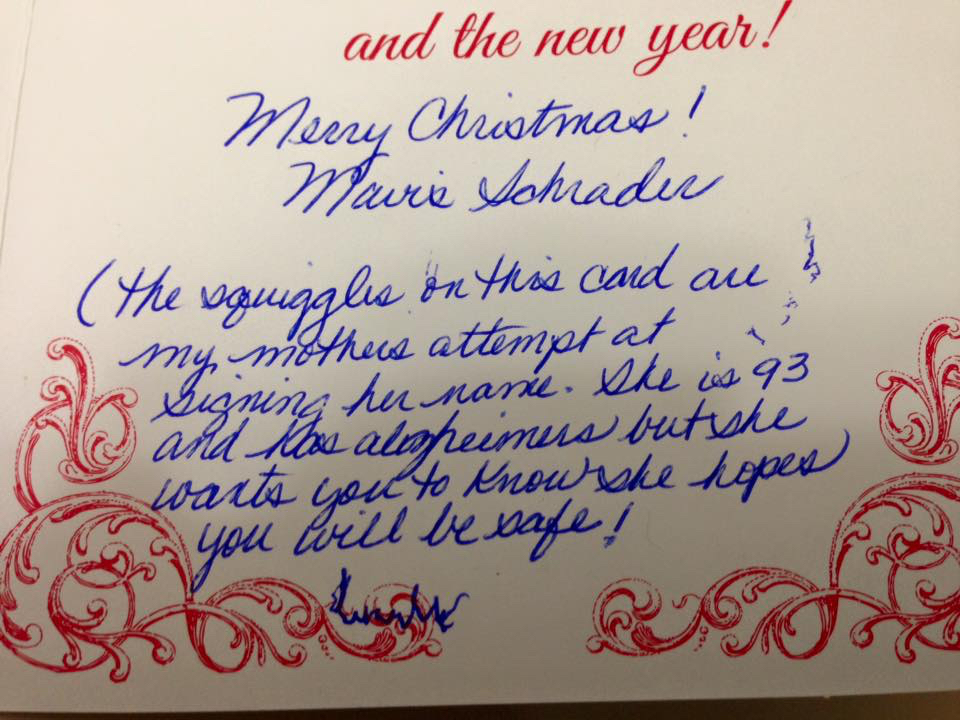 and the new year!
Merry Christmas!
Mavis Schrader
(the squiggles on this card are
my mothers attempt at
signing her name. She is 93
and has alozheimers but she
wants you to know she hopes
you will be safe!